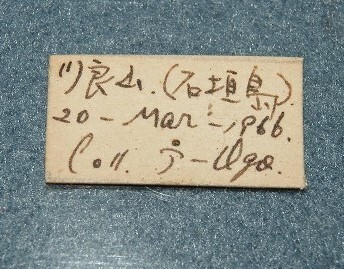 良山.(石垣島).
20-Mar-,1966.
Coll.